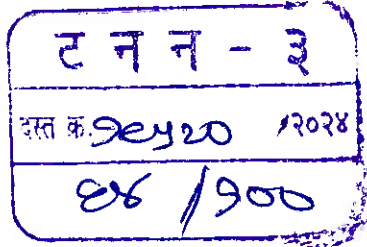 ट न न - ३
दस्त क्र. १९५२० /२०२४
६४ /१००